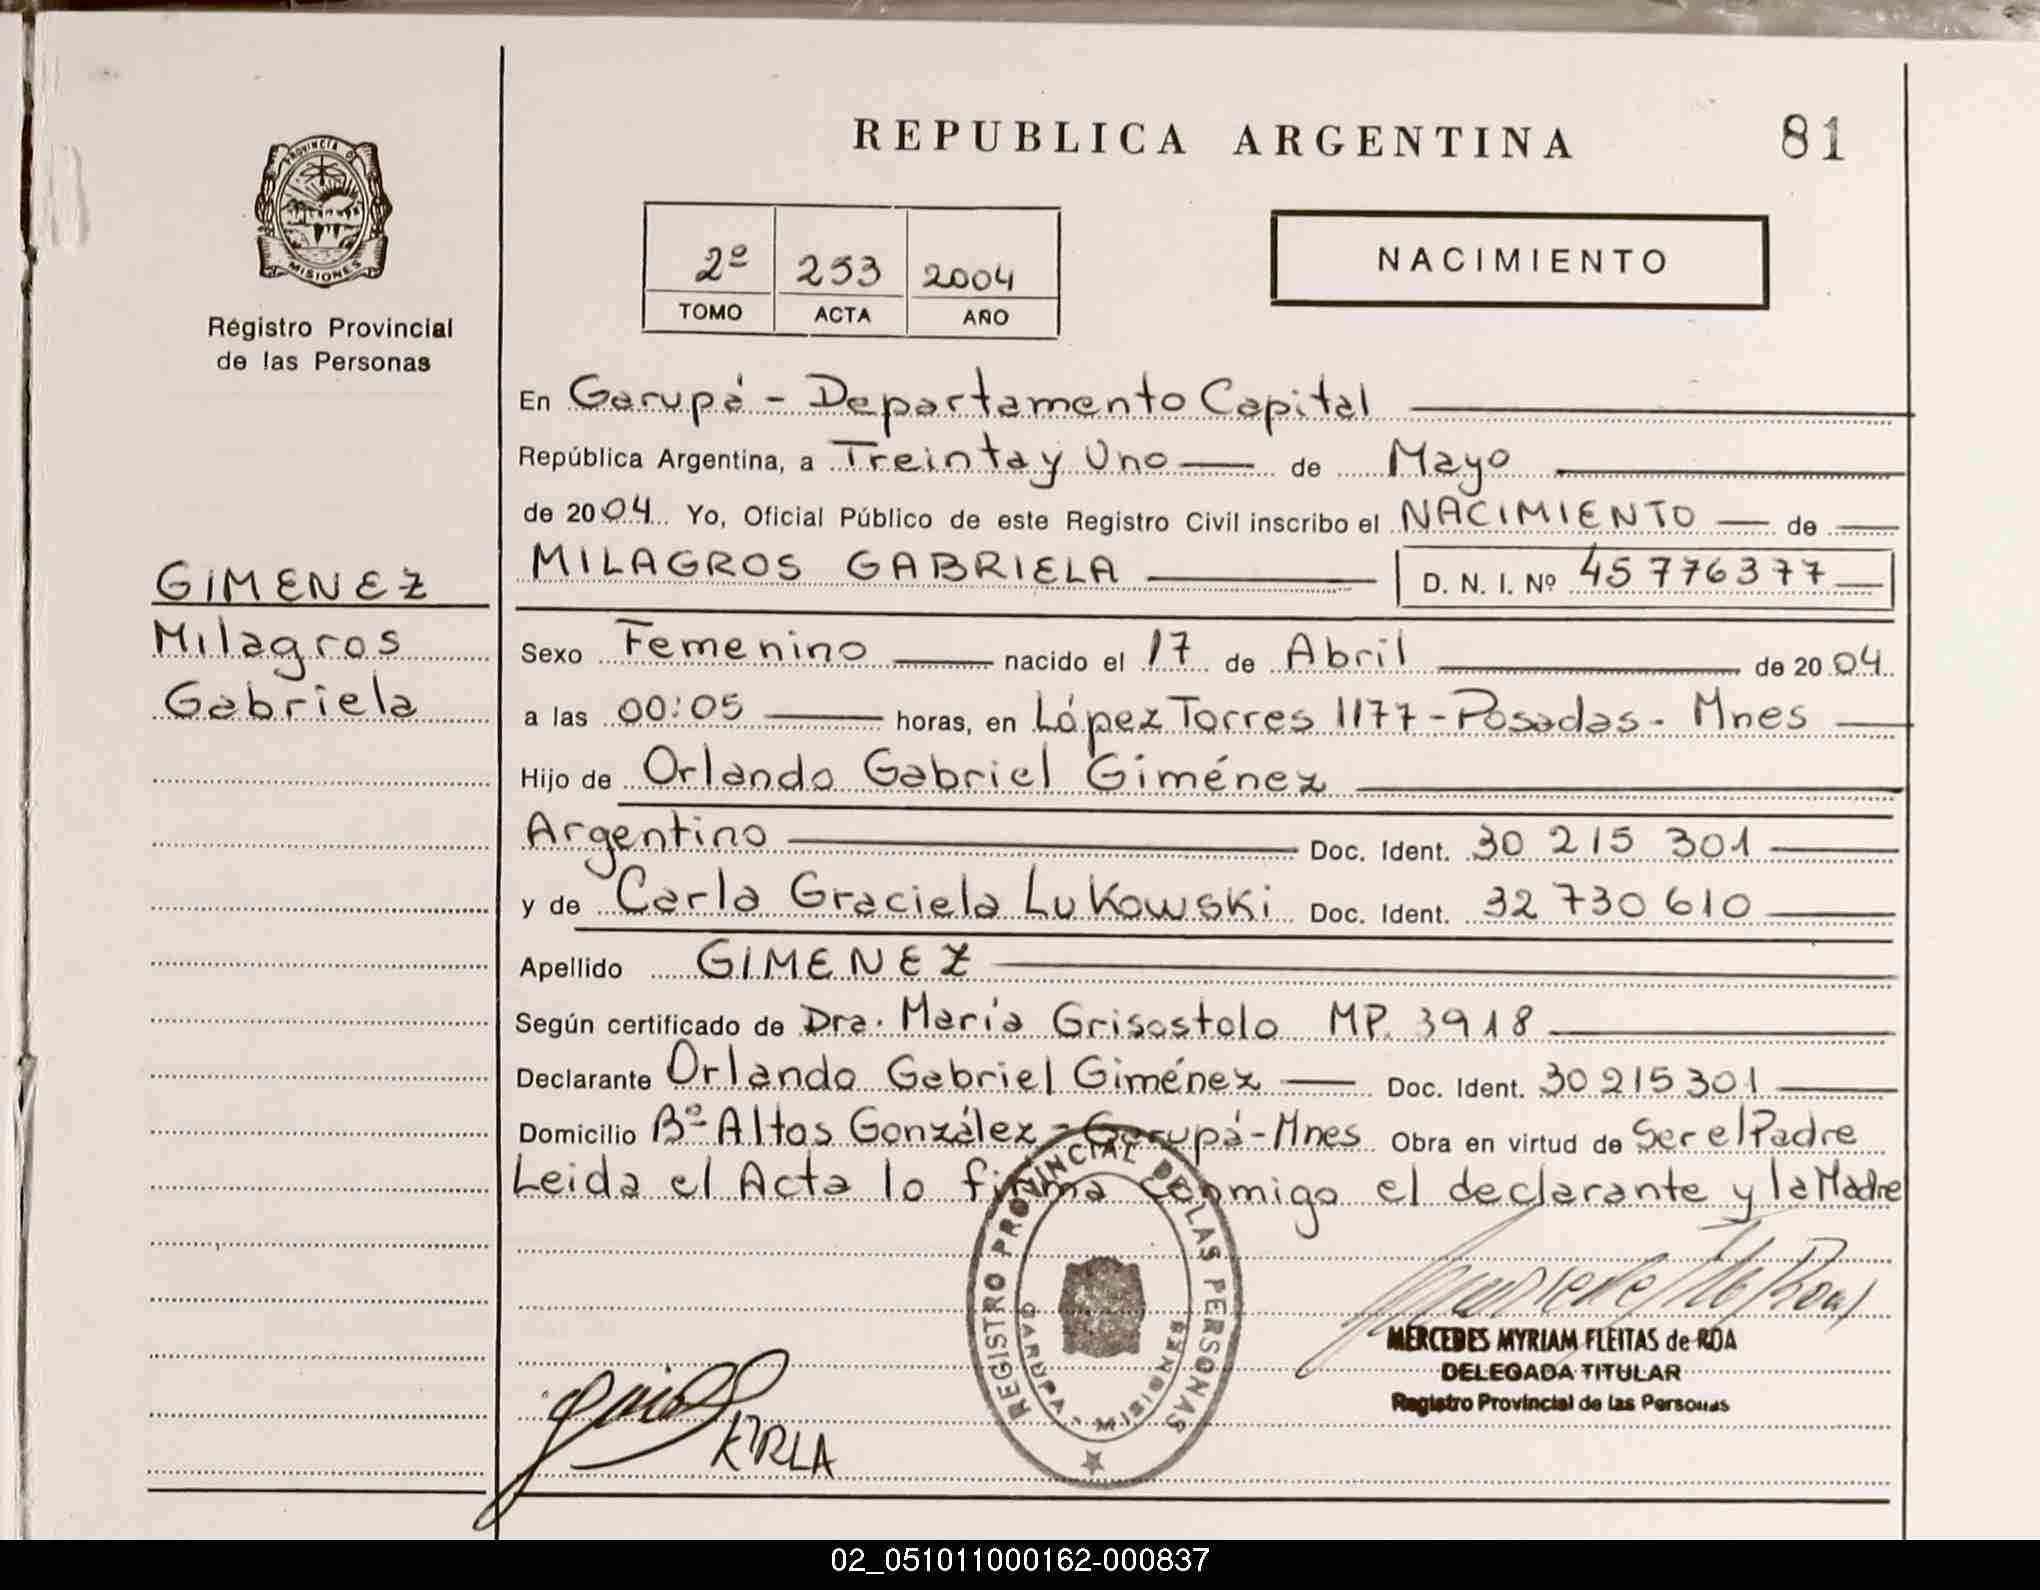 PROVINCIA DE
MISIONES
Registro Provincial
de las Personas
GIMENEZ
Milagros
Gabriela
REPUBLICA ARGENTINA
81
2º 253 2004
TOMO ACTA AÑO
NACIMIENTO
En Garupá - Departamento Capital
República Argentina, a Treinta y Uno de Mayo
de 2004 Yo, Oficial Público de este Registro Civil inscribo el NACIMIENTO de
MILAGROS GABRIELA D. N. I. Nº 45776377
Sexo Femenino nacido el 17 de Abril de 2004
a las 00:05 horas, en López Torres 1177 - Posadas - Mnes
Hijo de Orlando Gabriel Giménez
Argentino Doc. Ident. 30 215 301
y de Carla Graciela Lukowski Doc. Ident. 32 730 610
Apellido GIMENEZ
Según certificado de Dra. María Grisostolo MP. 3918
Declarante Orlando Gabriel Giménez Doc. Ident. 30215301
Domicilio Bº Altos González - Garupá - Mnes Obra en virtud de Ser el Padre
Leida el Acta lo firma conmigo el declarante y la Madre
REGISTRO PROVINCIAL DE LAS PERSONAS
GARUPA - MISIONES
MERCEDES MYRIAM FLEITAS de ROA
DELEGADA TITULAR
Registro Provincial de las Personas
KARLA
02_051011000162-000837